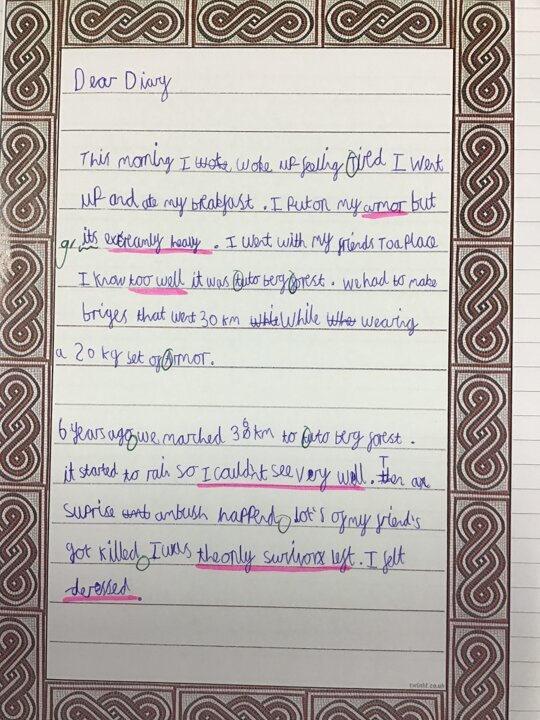 Dear Diary
This morning I woke, woke up feeling Tired I went
up and ate my breakfast. I put on my armor but
gr its extreamly heavy. I went with my friends To a place
I know too well it was tuto berg forest. we had to make
briges that went 30 km while While whe wearing
a 20 kg set of Armor.
6 years ago we marched 38 km to tuto berg forest.
it started to rain so I couldn't see very well. Then an
suprise amb ambush happend, Lot's of my friend's
got killed, I was the only survivor left. I felt
deressed.
twinkl.co.uk